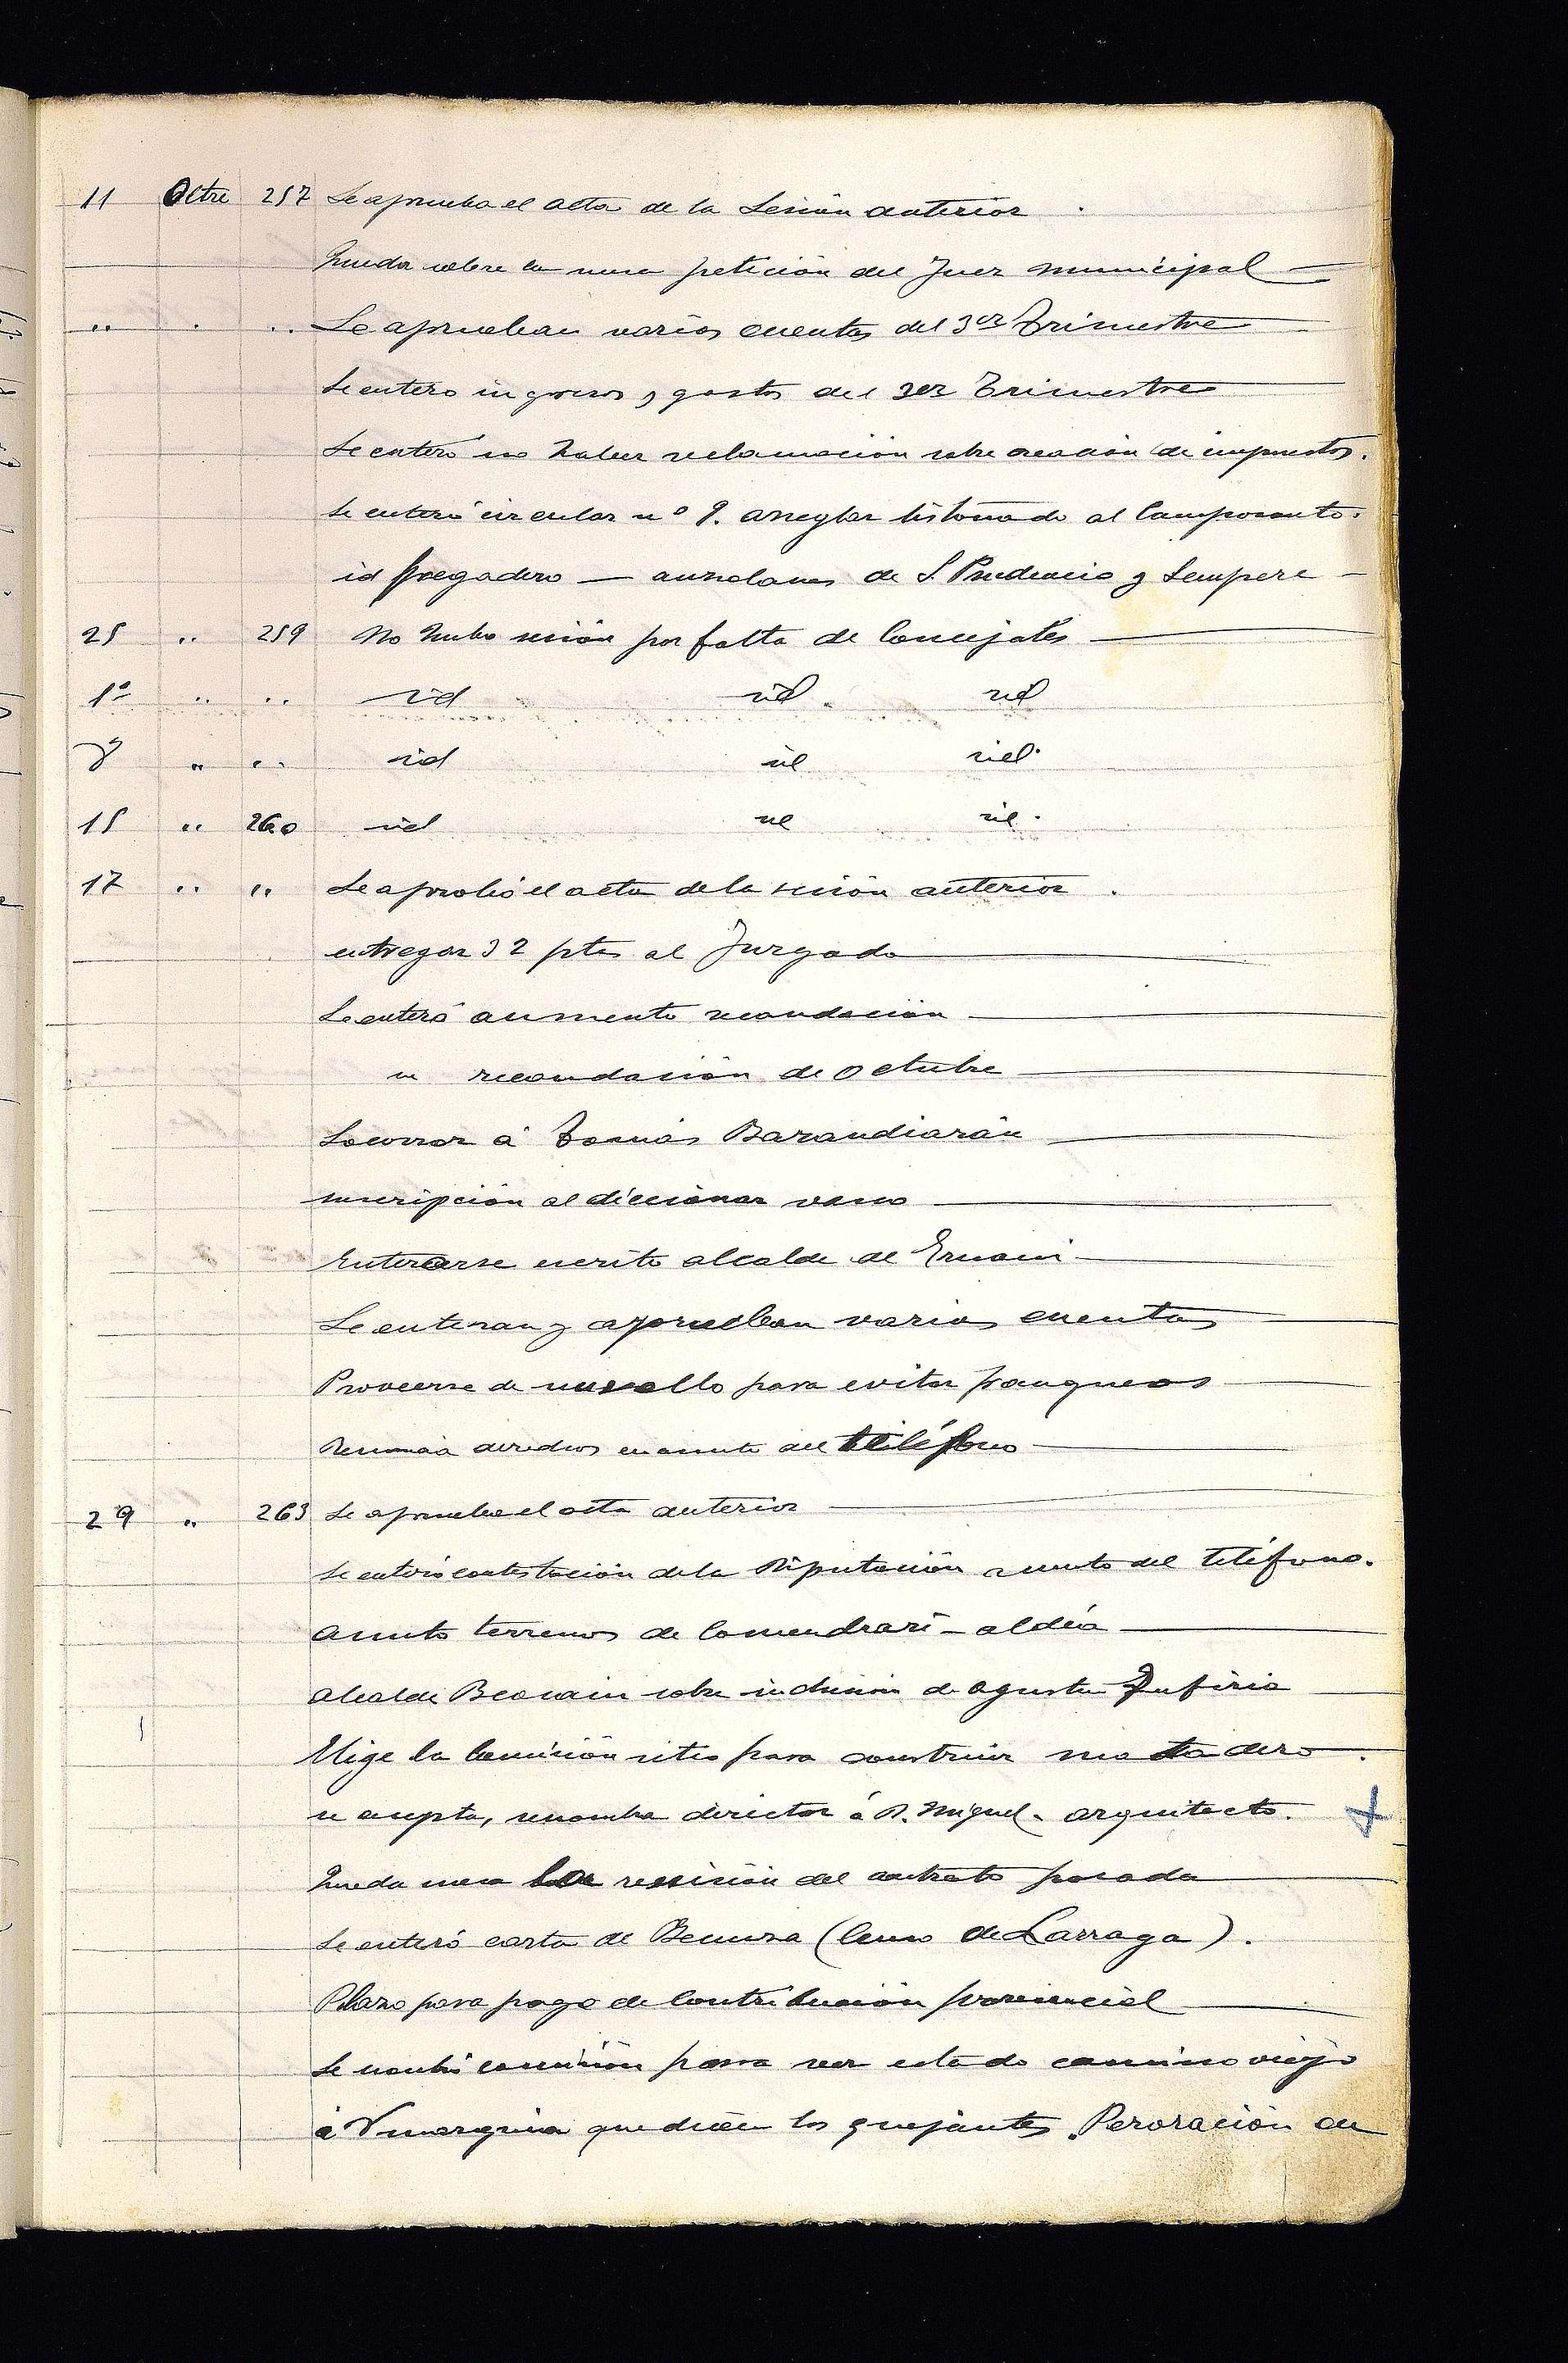 11 Oltre 257 Se aprueba el acta de la Sesión anterior.
Queda sobre la mesa petición del Juez municipal —
" . .. Se aprueban varias cuentas del 3er Trimestre
Se enteró ingresos y gastos del 3er Trimestre
Se enteró no haber reclamación sobre creación de impuestos.
Se enteró circular nº 9. arreglar listonado al Camposanto.
id fregadero — de S. Prudencio y Sempere —
25 .. 259 No hubo sesión por falta de Concejales —
1º .. .. id id. id
8 " .. id id id.
15 " 260 id id id.
17 .. " Se aprobó el acta de la sesión anterior.
entregar 32 ptas al Juzgado —
Se enteró aumento recaudación —
" recaudación de Octubre —
Socorrer á Tomás Barandiarán —
suscripción al diccionar vasco —
Enterarse escrito alcalde de Ernani —
Se enteran y aprueban varias cuentas
Proveerse de un sello para evitar franqueos —
Renuncia derechos en asunto del teléfono —
29 " 263 Se aprueba el acta anterior —
Se enteró contestación de la Diputación asunto del teléfono.
Asunto terrenos de Comendrari - aldea —
Alcalde Beasain sobre inclusión de Agustin Zufiria —
Elige la Comisión sitio para construir matadero.
se acepta, se nombra director á D. Miguel. arquitecto.
Queda mesa la rescisión del contrato posada —
Se enteró carta de (Censo de Larraga).
Plazo para pago de Contribución provincial —
Se nombró comisión para ver estado camino viejo
á que dicen los quejantes. Peroración en